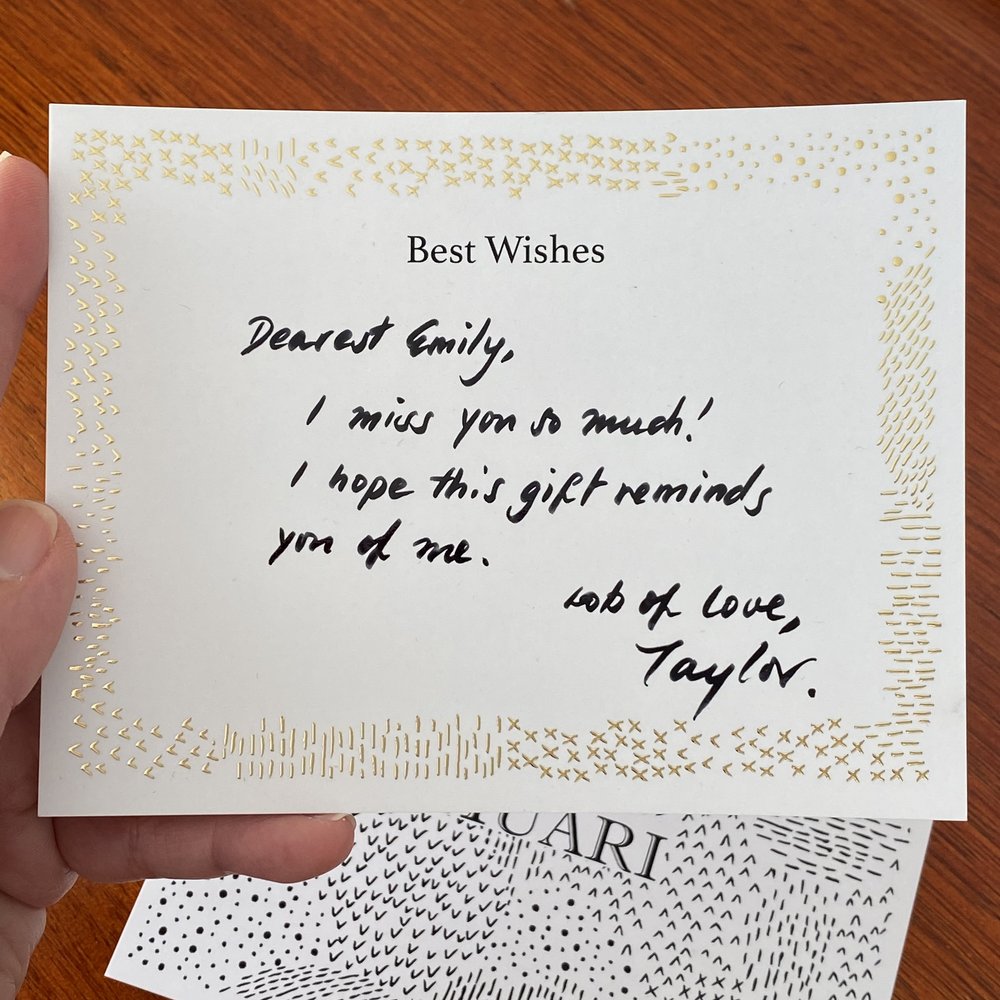 Best Wishes
Dearest Emily,
I miss you so much!
I hope this gift reminds
you of me.
Lots of love,
Taylor.
TUARI